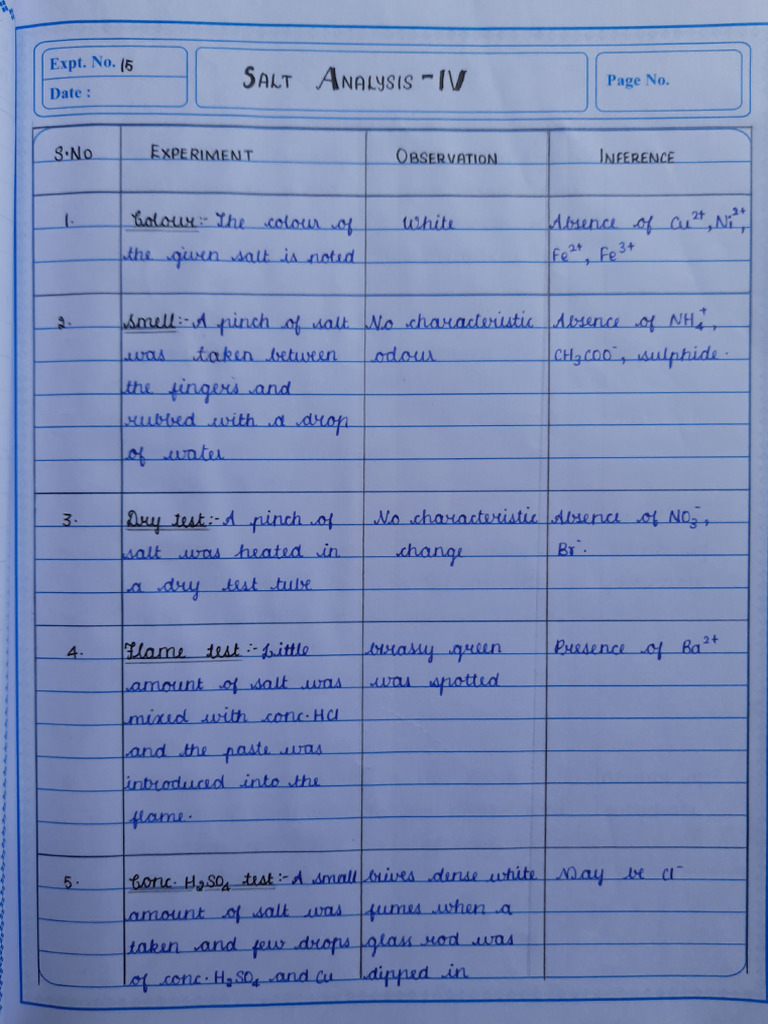 Expt. No. 15
Date :
SALT ANALYSIS - IV
Page No.
S.NO EXPERIMENT OBSERVATION INFERENCE
1. Colour:- The colour of White Absence of Cu²⁺, Ni²⁺,
the given salt is noted Fe²⁺, Fe³⁺
2. Smell:- A pinch of salt No characteristic Absence of NH₄⁺,
was taken between odour CH₃COO⁻, sulphide.
the fingers and
rubbed with a drop
of water
3. Dry test:- A pinch of No characteristic Absence of NO₃⁻,
salt was heated in change Br⁻.
a dry test tube
4. Flame test:- Little Grassy green Presence of Ba²⁺
amount of salt was was spotted
mixed with conc. HCl
and the paste was
introduced into the
flame.
5. Conc. H₂SO₄ test:- A small Gives dense white May be Cl⁻
amount of salt was fumes when a
taken and few drops glass rod was
of conc. H₂SO₄ and Cu dipped in